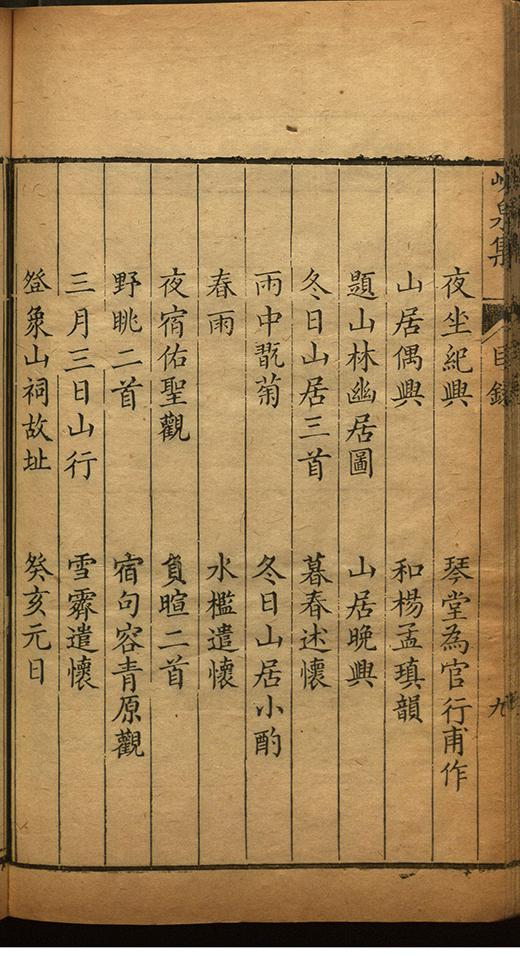 峴泉集 目録 九
夜坐紀興 琴堂為官行甫作
山居偶興 和楊孟瑱韻
題山林幽居圖 山居晚興
冬日山居三首 暮春述懷
雨中翫菊 冬日山居小酌
春雨 水檻遣懷
夜宿佑聖觀 負暄二首
野眺二首 宿句容青原觀
三月三日山行 雪霽遣懷
登象山祠故址 癸亥元日